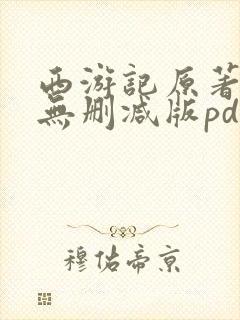 西游記原著
無删减版pd
穆佑帝京